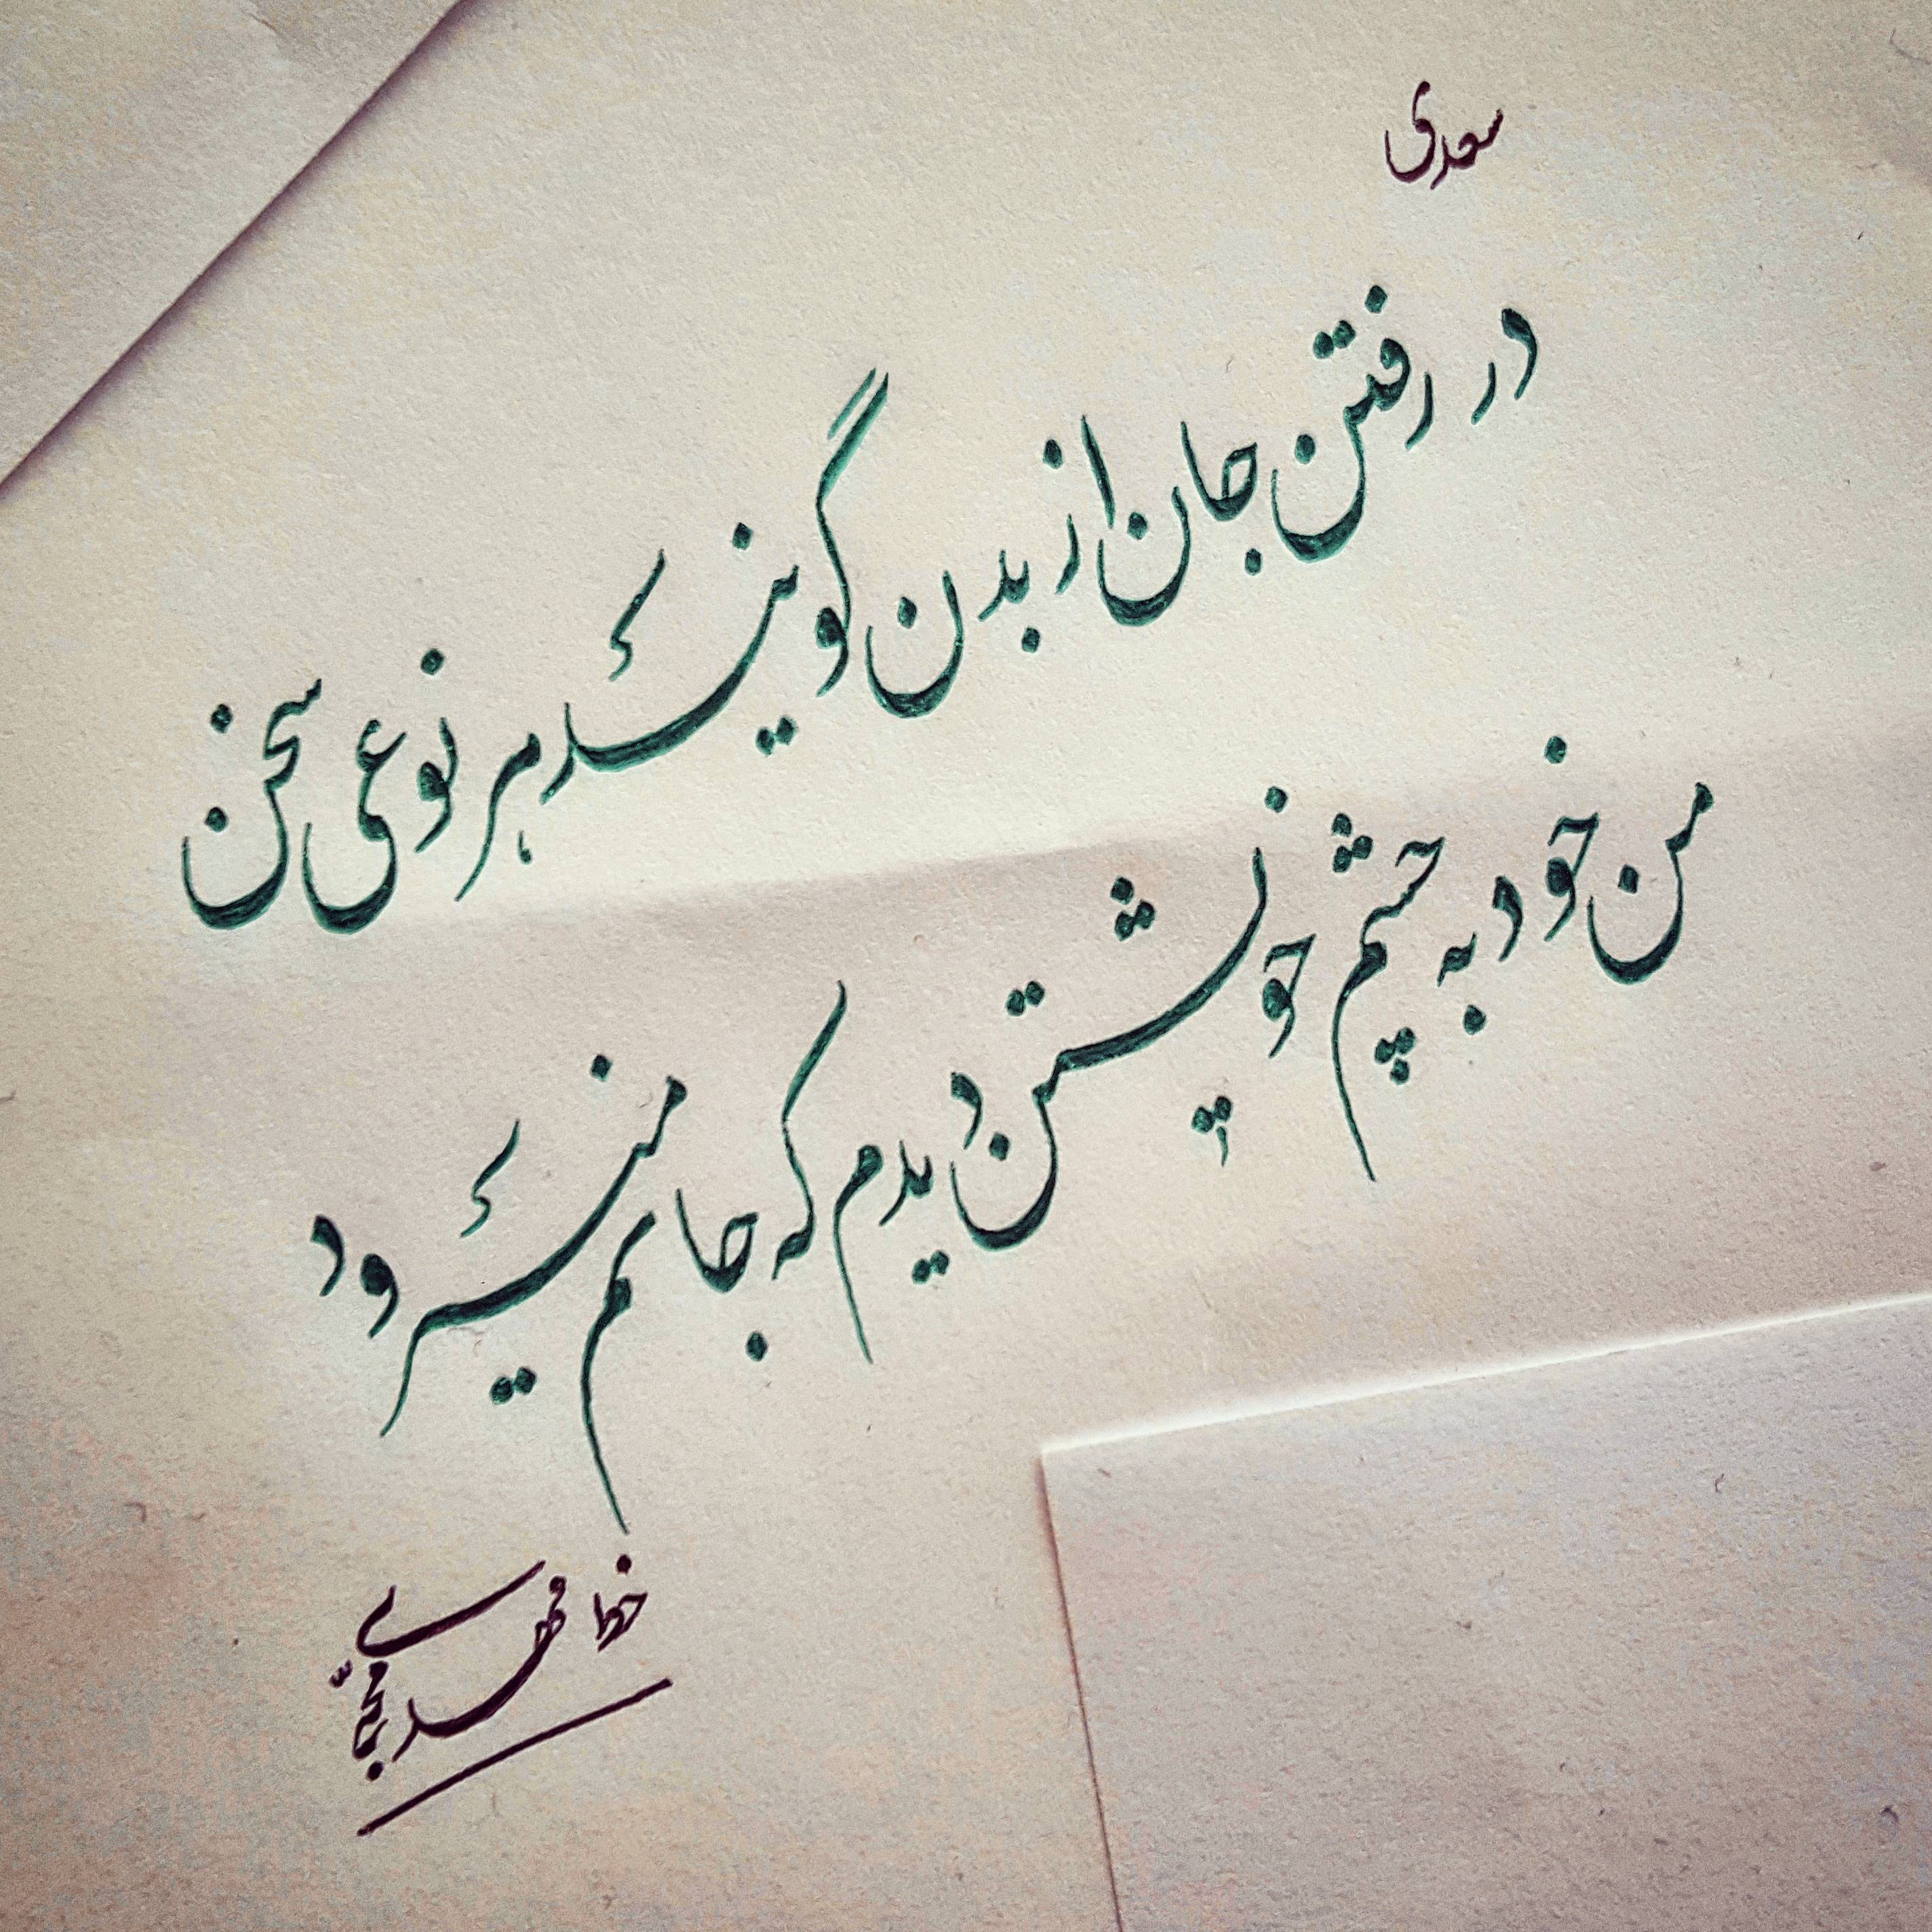 سعدی
در رفتن جان از بدن گویند هر نوعی سخن
من خود به چشم خویشتن دیدم که جانم میرود
خط مهدی